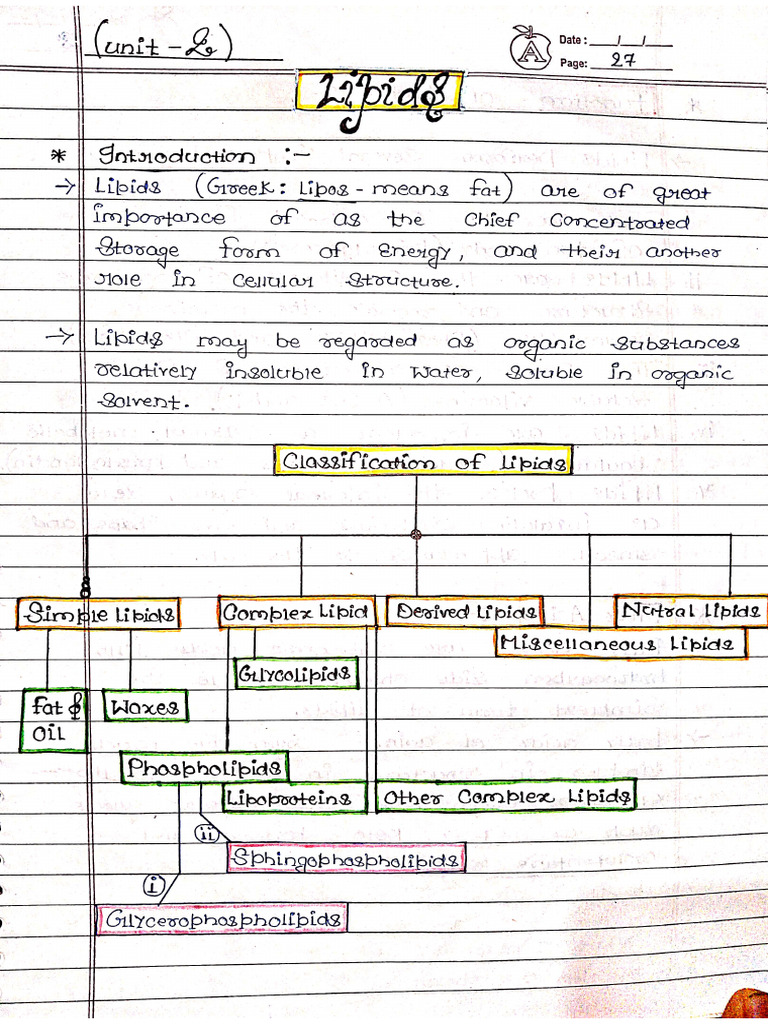 (unit - 2)
A
Date : __/__/__
Page: 27
Lipids
* Introduction :-
→ Lipids (Greek: Lipos - means fat) are of great
importance of as the Chief Concentrated
Storage form of Energy, and their another
role in Cellular Structure.
→ Lipids may be regarded as organic substances
relatively insoluble in Water, soluble in organic
solvent.
Classification of Lipids
Simple Lipids
Complex Lipid
Derived Lipids
Nutral Lipids
Miscellaneous Lipids
Glycolipids
fat &
oil
Waxes
Phospholipids
Lipoproteins
Other Complex Lipids
ii
Sphingophospholipids
i
Glycerophospholipids